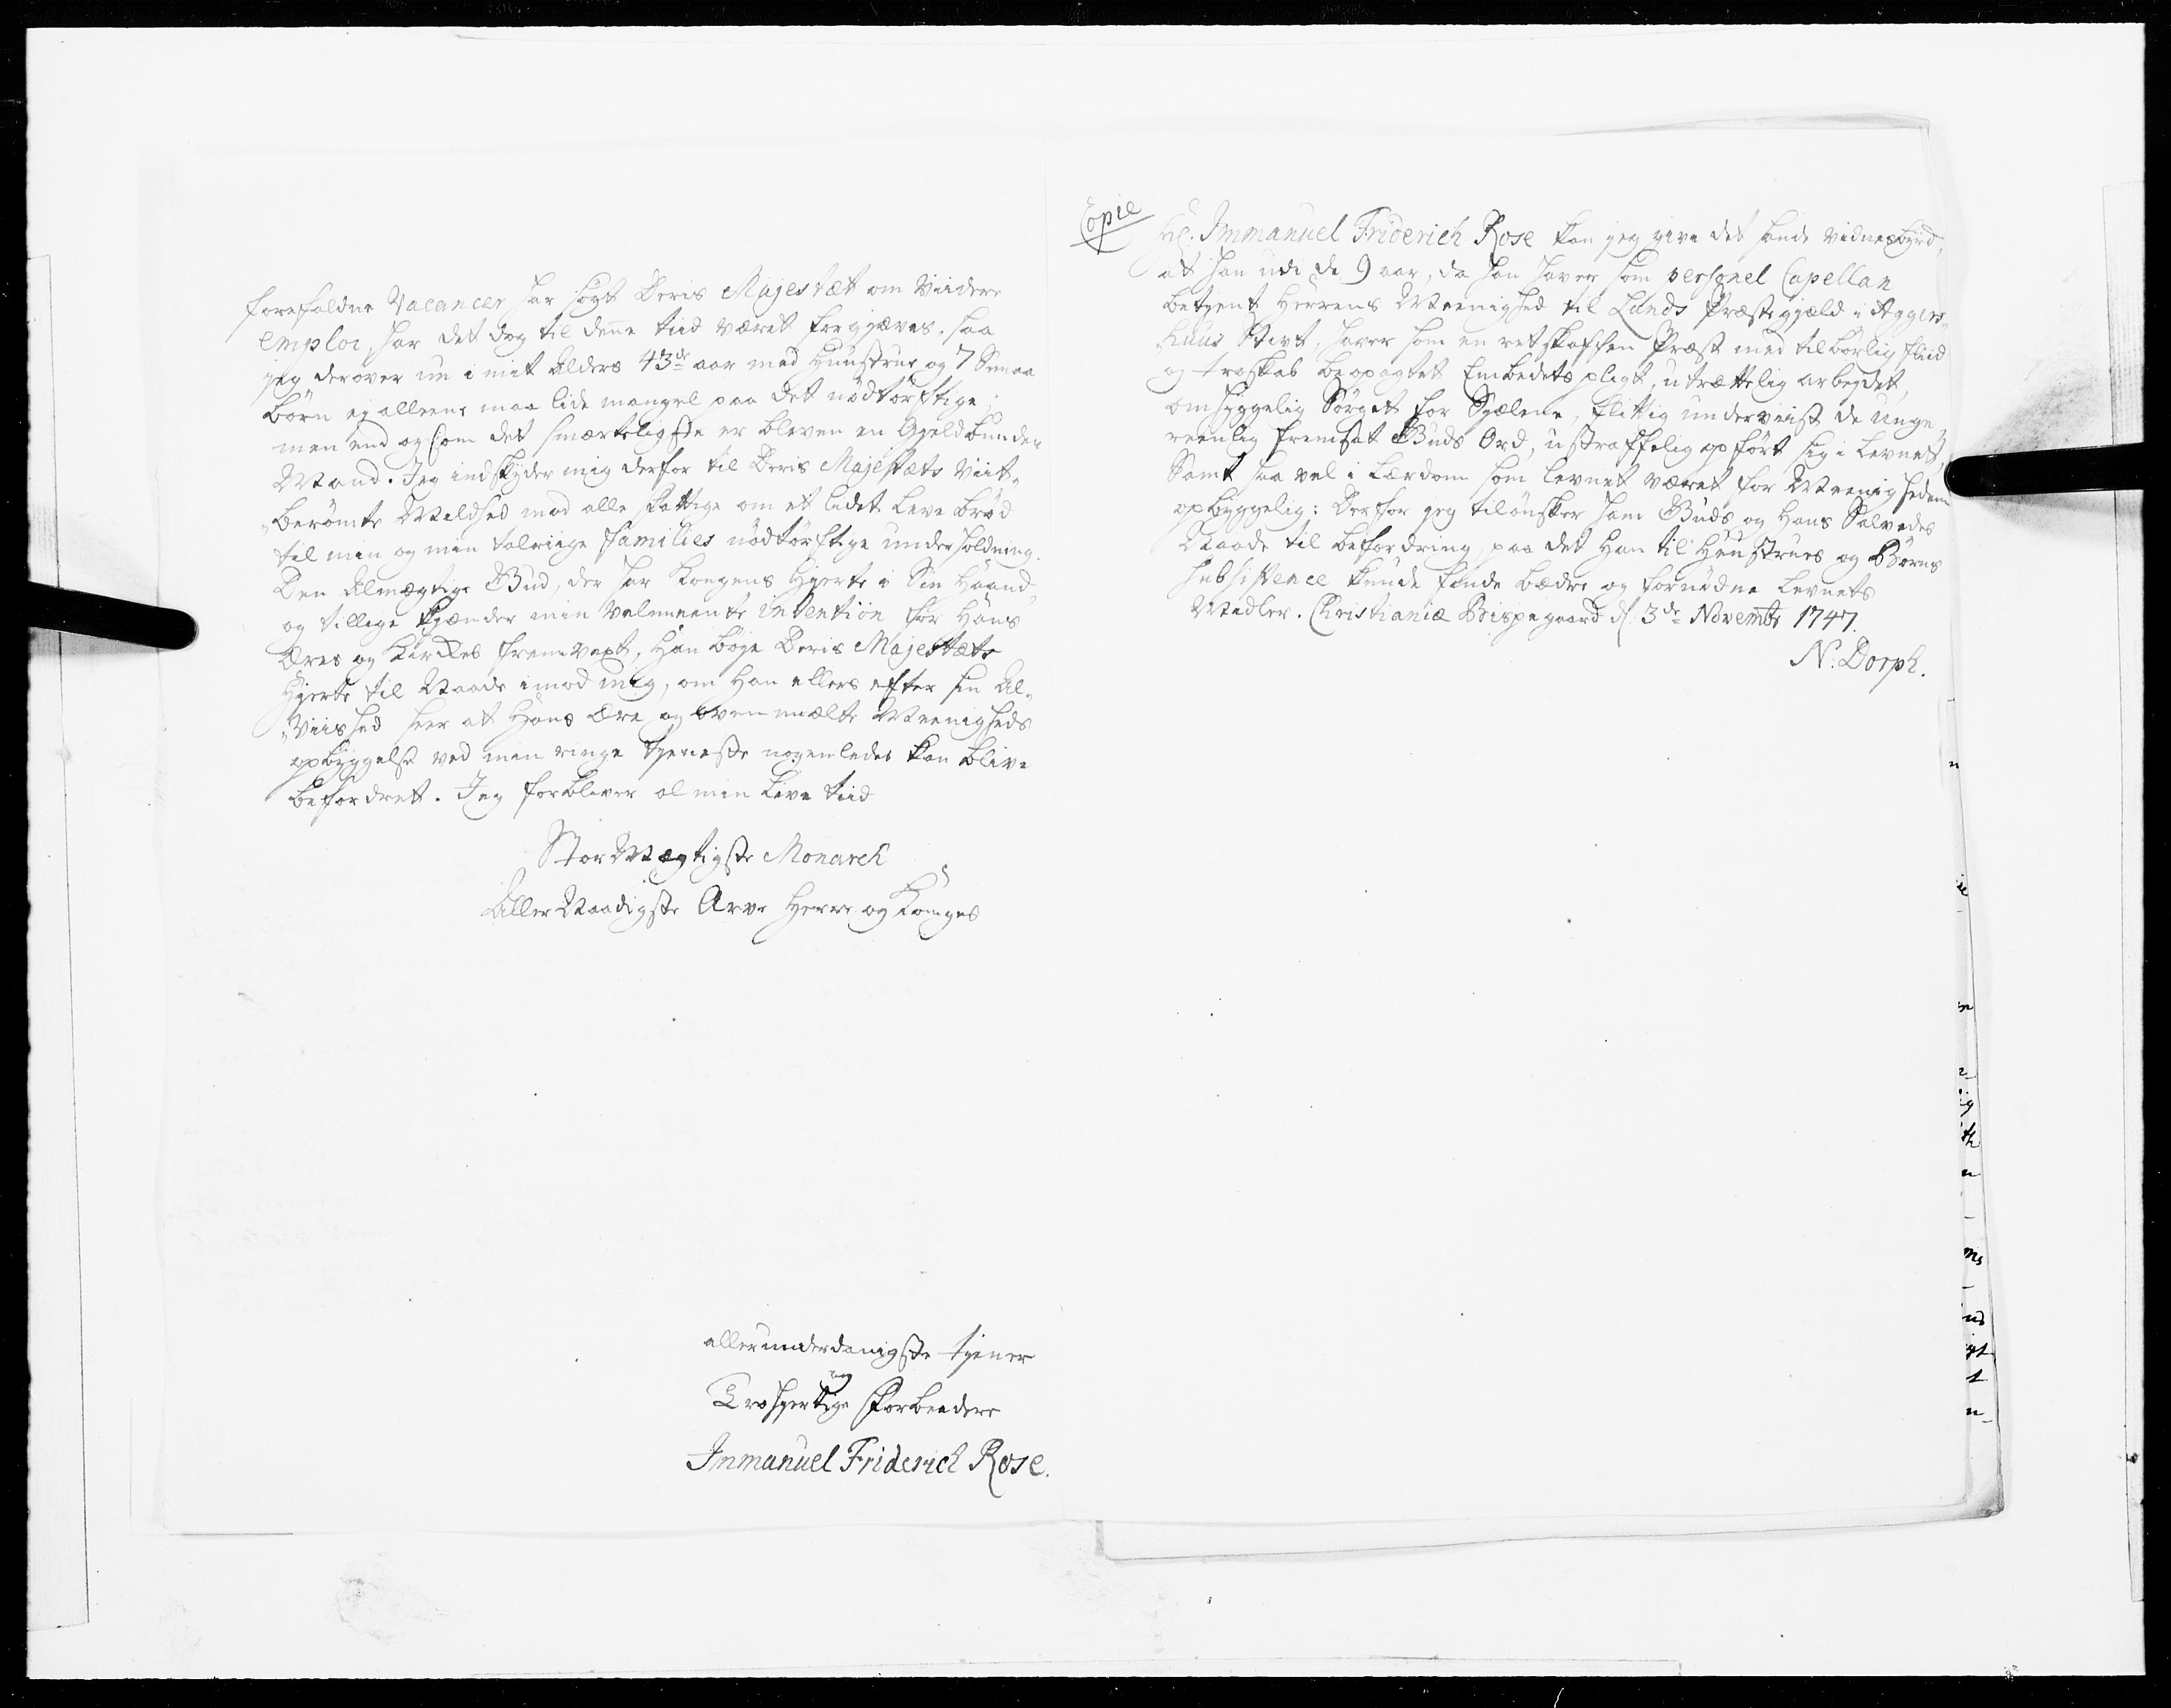 forefaldne Vacancer har søgt Deris Majestæt om Viidere
emploi, har det dog til denne tiid været forgjæves. saa
jeg derover nu i mit Alders 43de aar med Huustrue og 7 Smaa
børn ej alleene maa lide mangel paa det nødtørftige;
men end og som det smærteligste er bleven en Gjeldbunden
Mand. Jeg indskyder mig derfor til Deris Majestæts Viit-
berømte Mildhed mod alle fattige om et lidet leve brød
til min og min talriige Families nødtørftige underholdning.
Den Almægtige Gud, der har Kongens Hjerte i Sin Haand,
og tillige kjender min velmeente intention for Hans
Æres og Kirkes fremvext, Han bøje Deris Majestæts
Hjerte til Naade imod mig, om Han ellers efter sin Al-
Viished seer at Hans Ære og ovenmælte Meenigheds
opbyggelse ved min ringe tjeneste nogenledes kan blive
befordret. Jeg forbliver al min Leve tiid
StorMægtigste Monarch
AllerNaadigste Arve Herre og Konges
allerunderdanigste tjener
og
Troehjertige Forbeedere
Immanuel Friderich Rose.
Copie
Hr. Immanuel Friderich Rose kan jeg give det sande vidnesbyrd,
at han udi de 9 aar, da han haver som personel Capellan
betjent Herrens Meenighed til Lunds Præstegjæld i Aggers-
huus Stift, haver som en retskaffen Præst med tilbørlig fliid
og troskab beopagtet Embedets pligt, utrættelig arbejdet,
omhyggelig Sørget for Sjælene, flittig underviist de unge,
reenlig fremsat Guds Ord, ustraffelig opført sig i Levnet,
Samt saa vel i Lærdom som levnet været for Meenigheden
opbyggelig: Derfor jeg tilønsker ham Guds og Hans Salvedes
Naade til befordring, paa det Han til Huustrues og Børns
Subsistence kunde finde bædre og fornødne Levnets
Midler. Christianiæ Bispegaard d. 3de Novembr 1747.
N. Dorph.